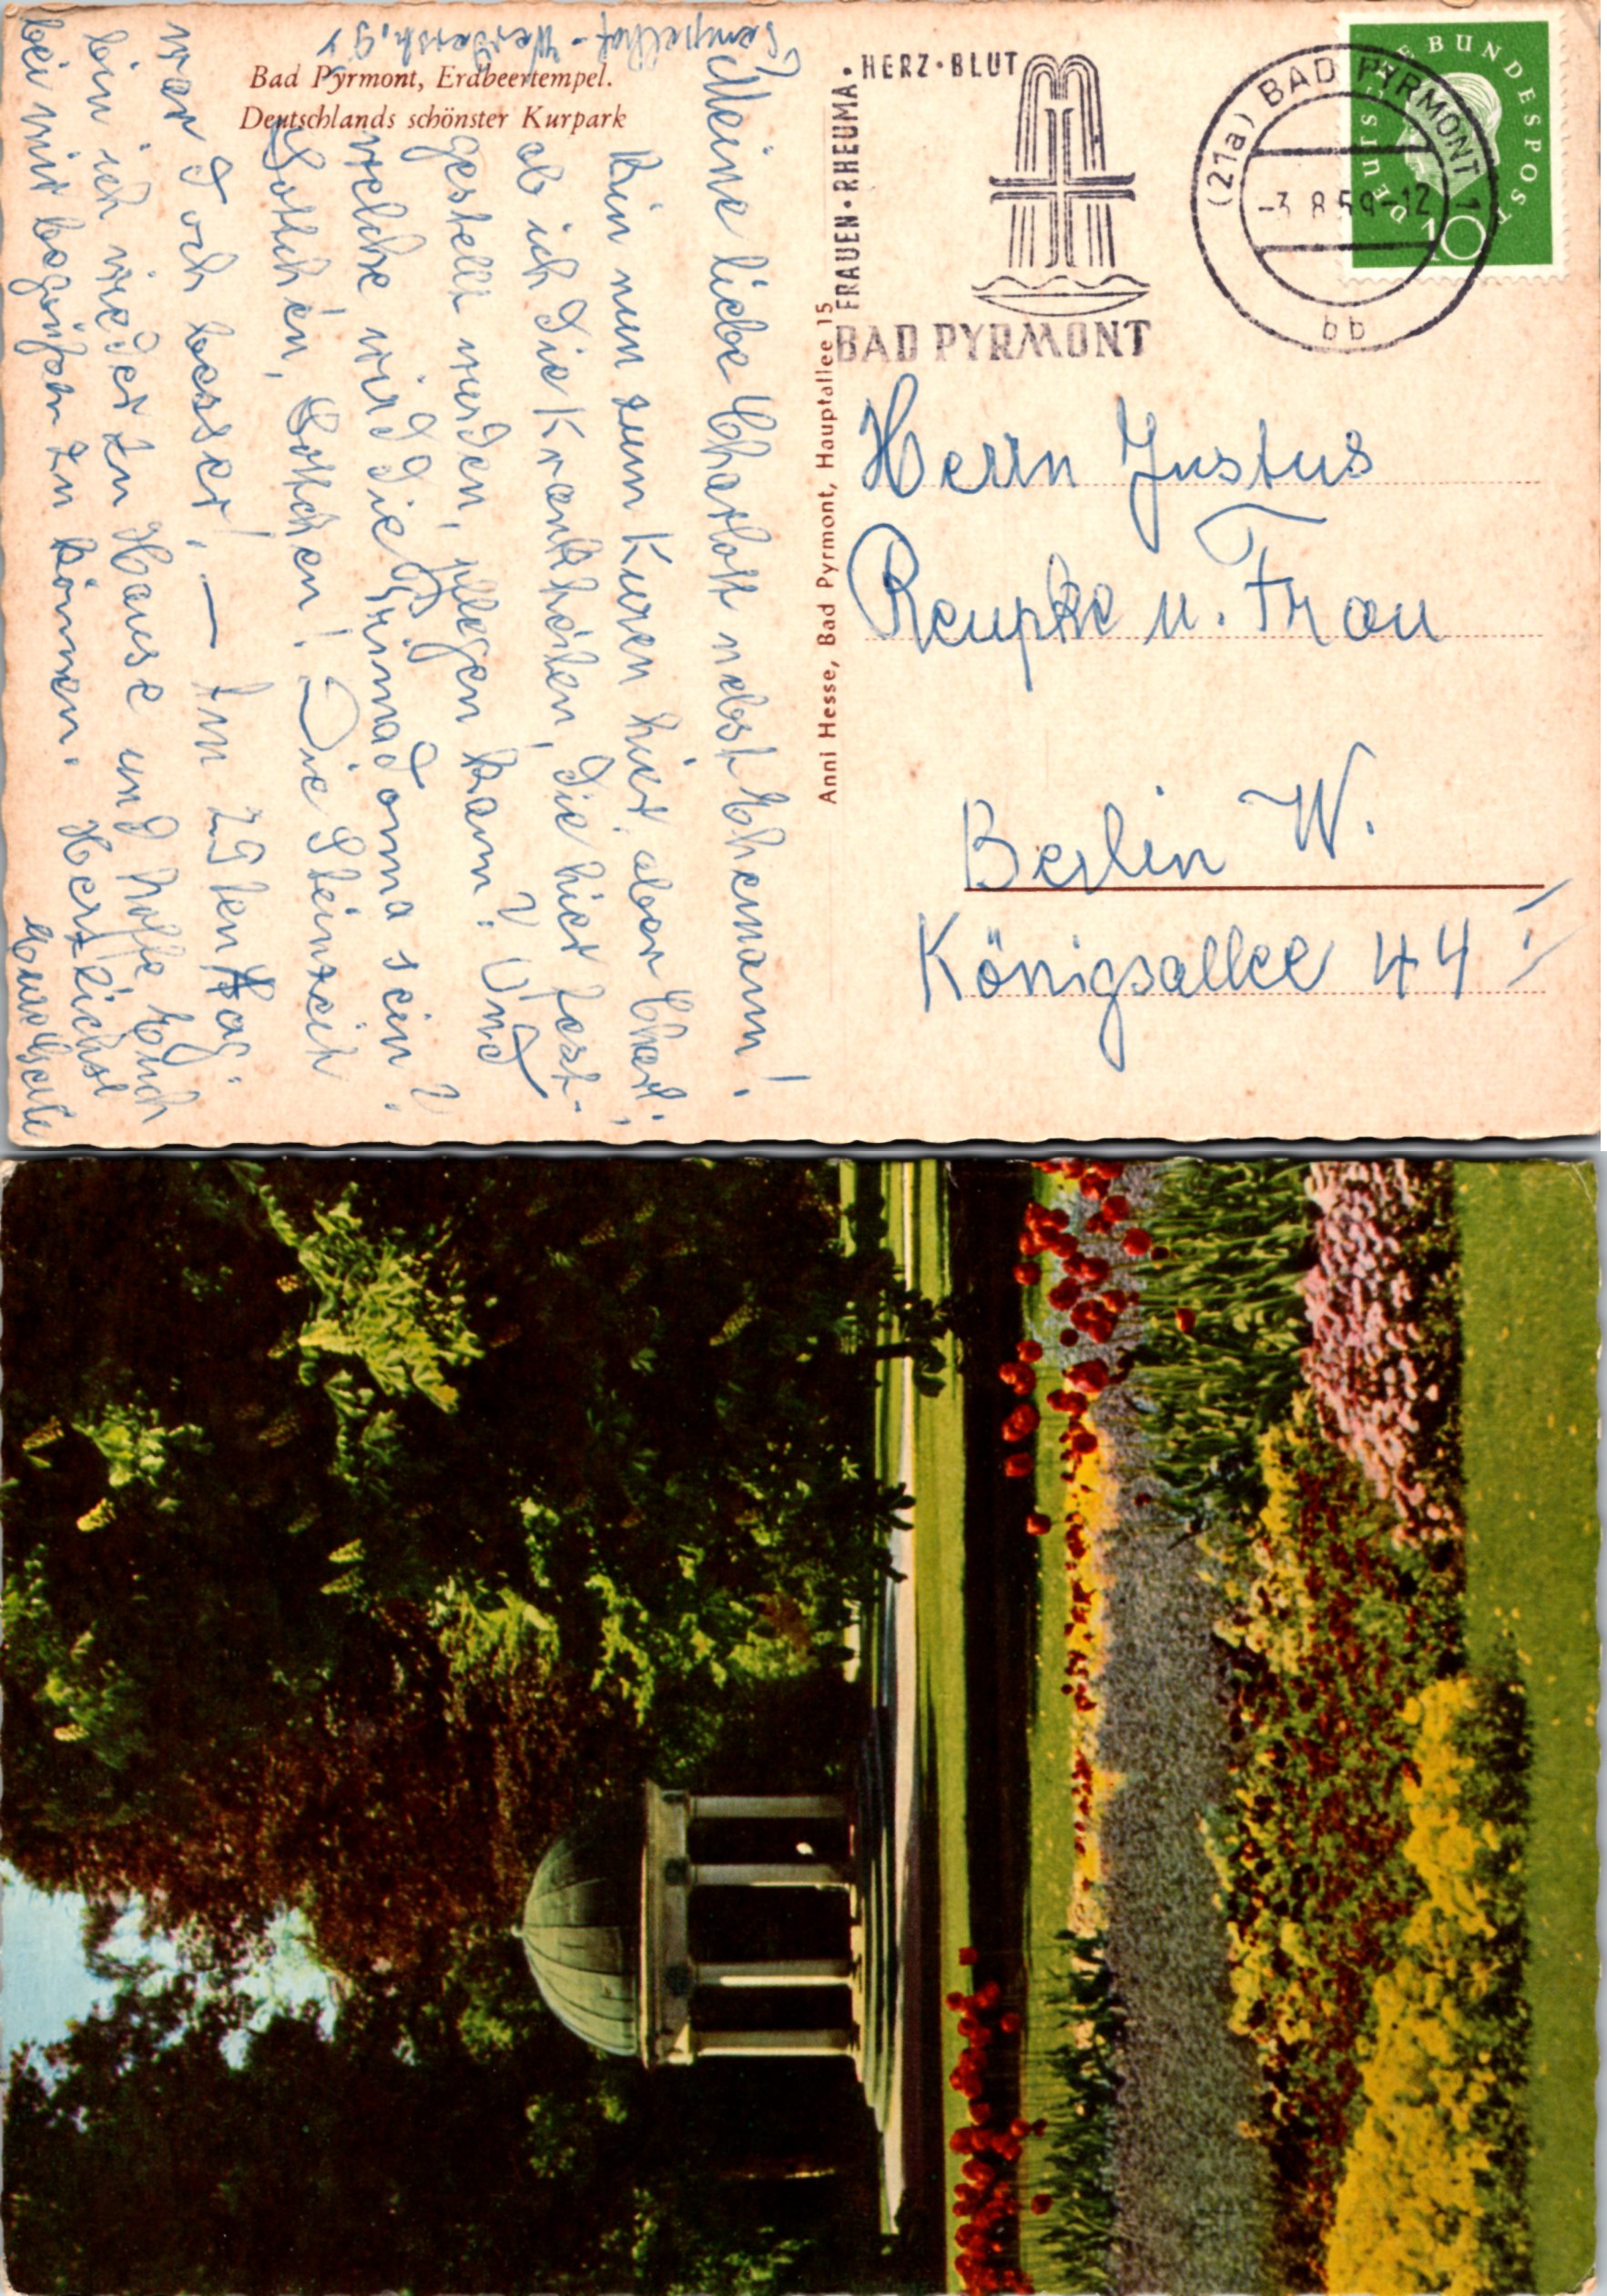 Bad Pyrmont, Erdbeertempel.
Deutschlands schönster Kurpark
Tempelhof - Werderstr. 9
Meine liebe Charlott nebst Ehemann!
Bin nun zum Kuren hier, aber Charl.,
ob ich die Krankheiten, die hier fest-
gestellt wurden, pflegen kann? Und
welche wird die Primadonna sein?
Lottchen, Lottchen! Die Steinzeit
war doch besser! — Am 29ten Aug.
bin ich wieder zu Hause und hoffe, Euch
bei mir begrüßen zu können. Herzlichst
Eure
Anni Hesse, Bad Pyrmont, Hauptallee 15
FRAUEN · RHEUMA · HERZ · BLUT
BAD PYRMONT
(21a) BAD PYRMONT 1
-3.8.59-12
bb
DEUTSCHE BUNDESPOST
10
Herrn Justus
Reupke u. Frau
Berlin W.
Königsallee 44 I